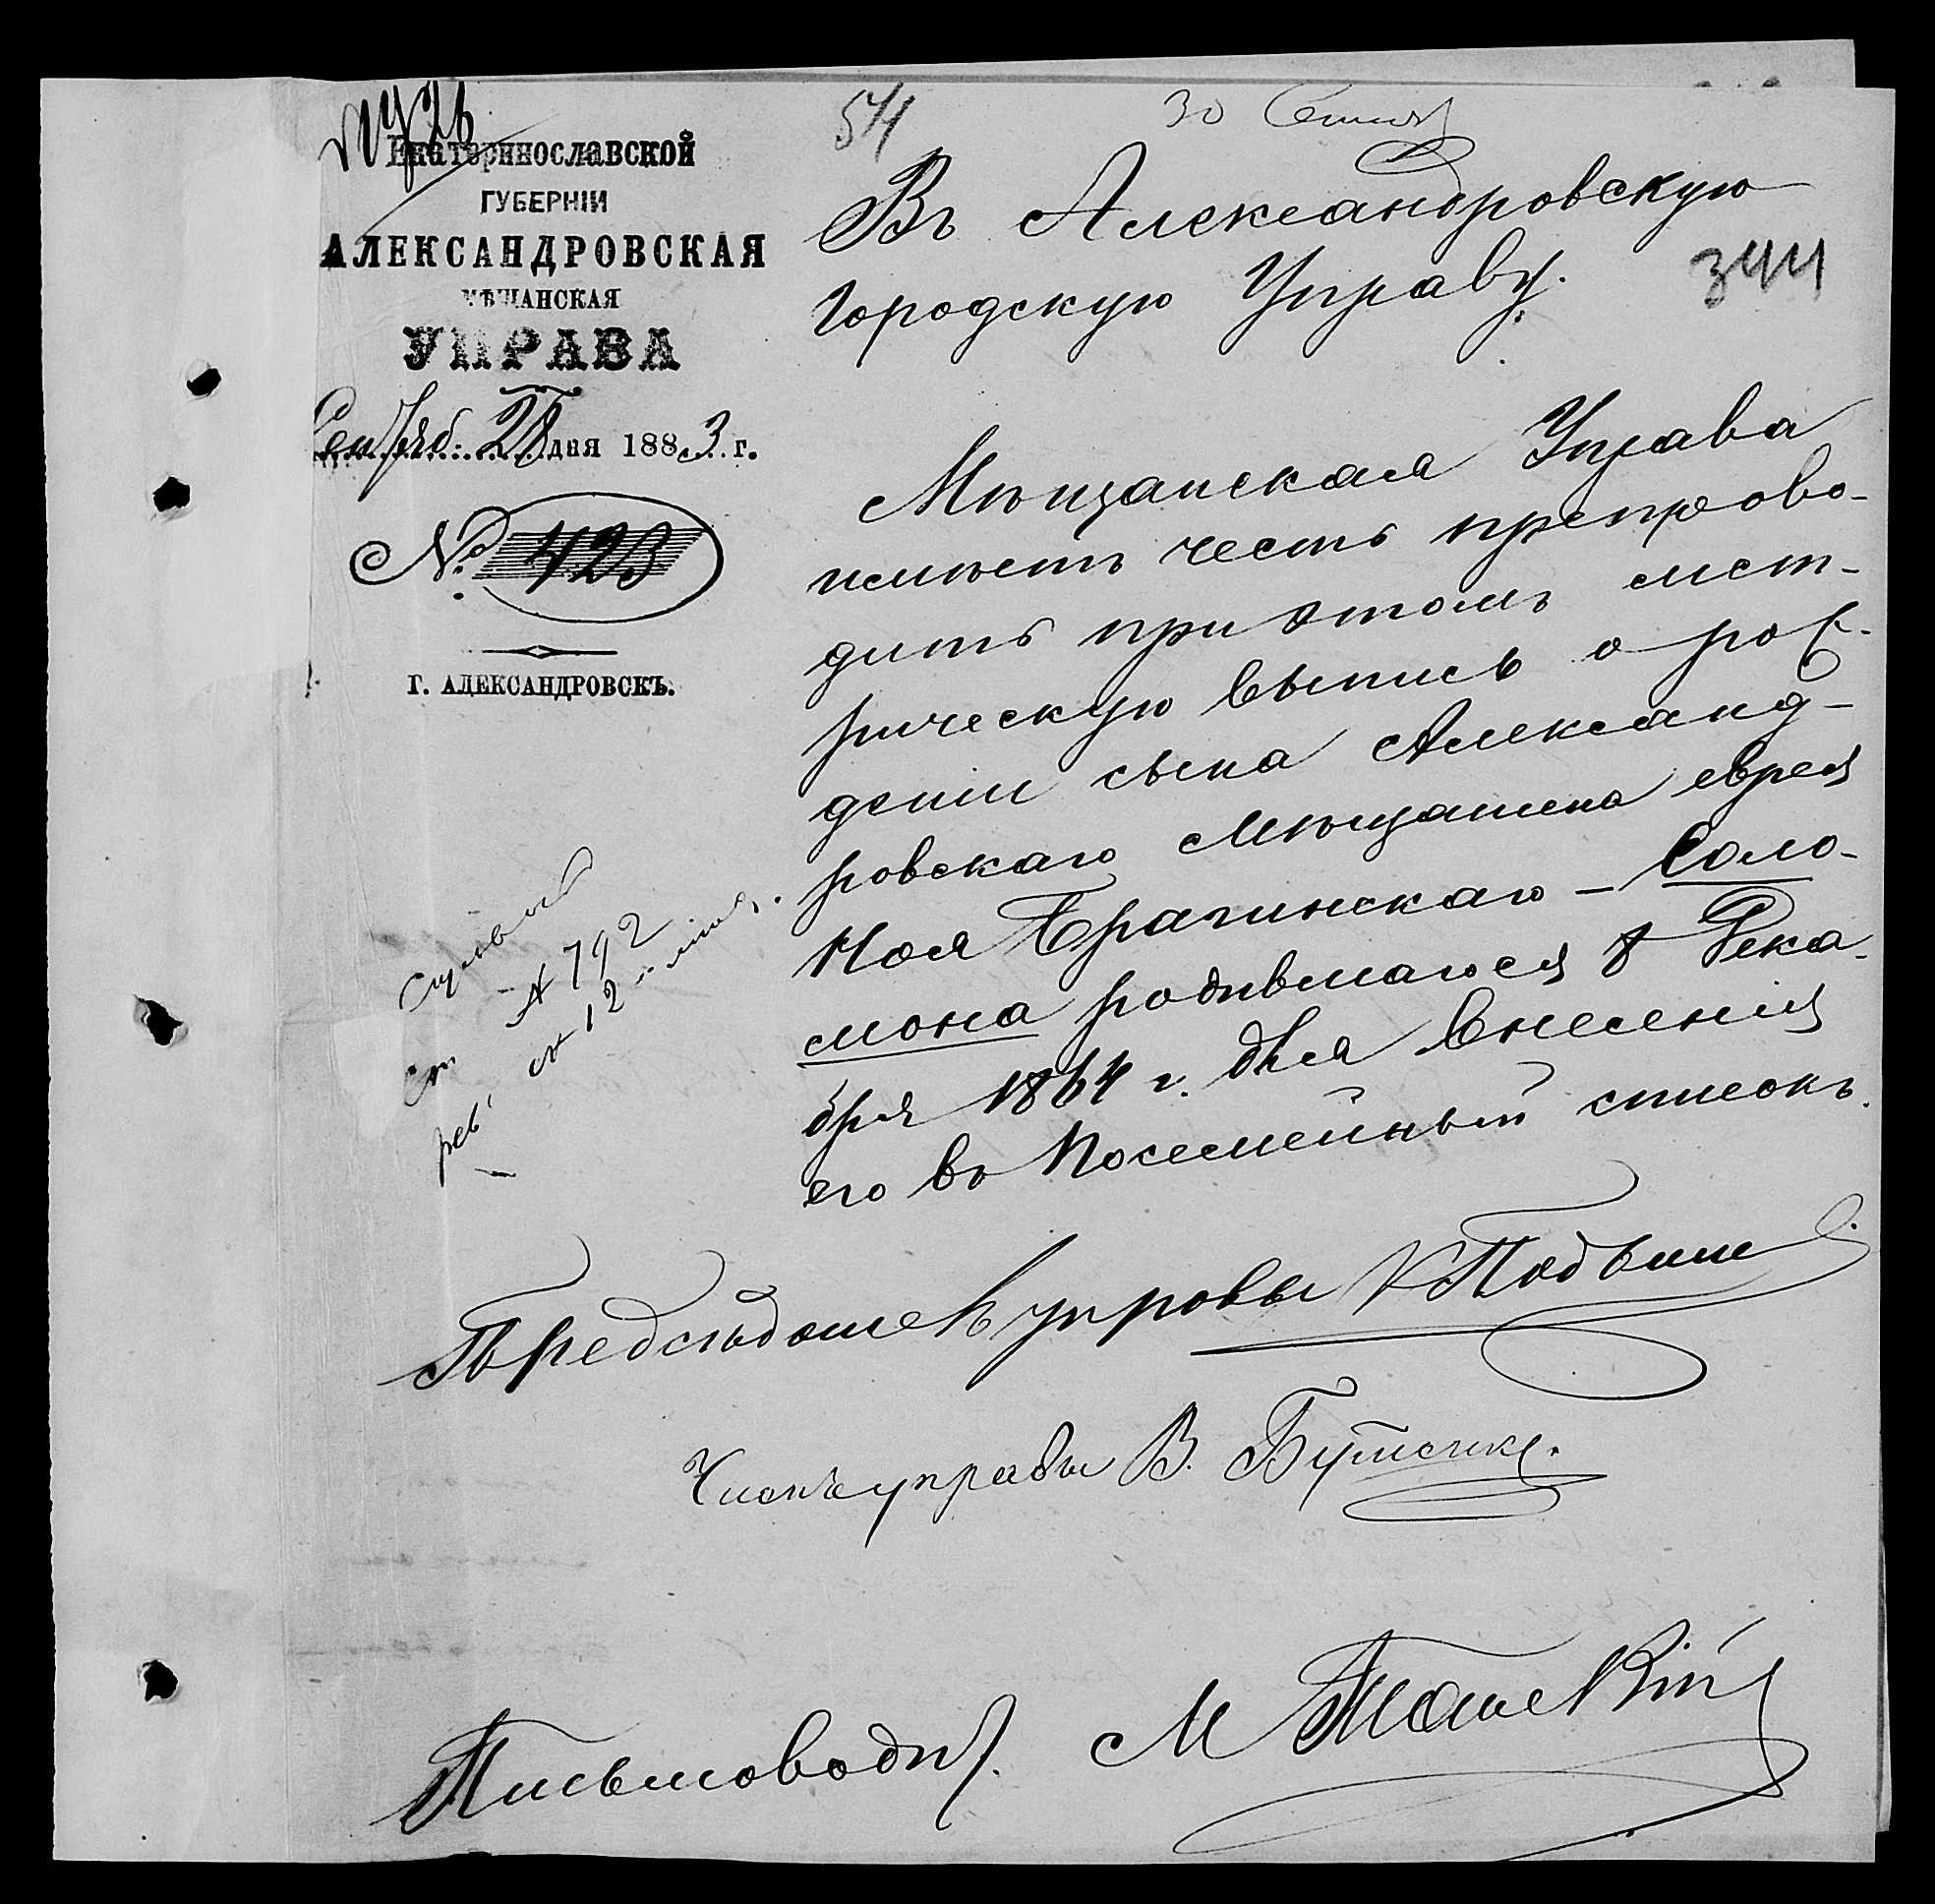 54
30 Сентяб
Екатеринославской
ГУБЕРНІИ
АЛЕКСАНДРОВСКАЯ
МѢЩАНСКАЯ
УПРАВА
Сентяб: 28 дня 1883 г.
№ 423
Г. АЛЕКСАНДРОВСКЪ.
Въ Александровскую
Городскую Управу.
344
Мѣщанская Управа
имѣетъ честь препрово-
дить при этомъ мет-
рическую выпись о рож-
деніи сына Александ-
ровскаго мѣщанина еврея
Ноя Брагинскаго – Соло-
мона родившагося 8 Дека-
бря 1864 г. для внесенія
его въ Посемейный списокъ.
№ 792
12
Предсѣдатель управы
Членъ управы В. Бутенко.
Письмоводит. М